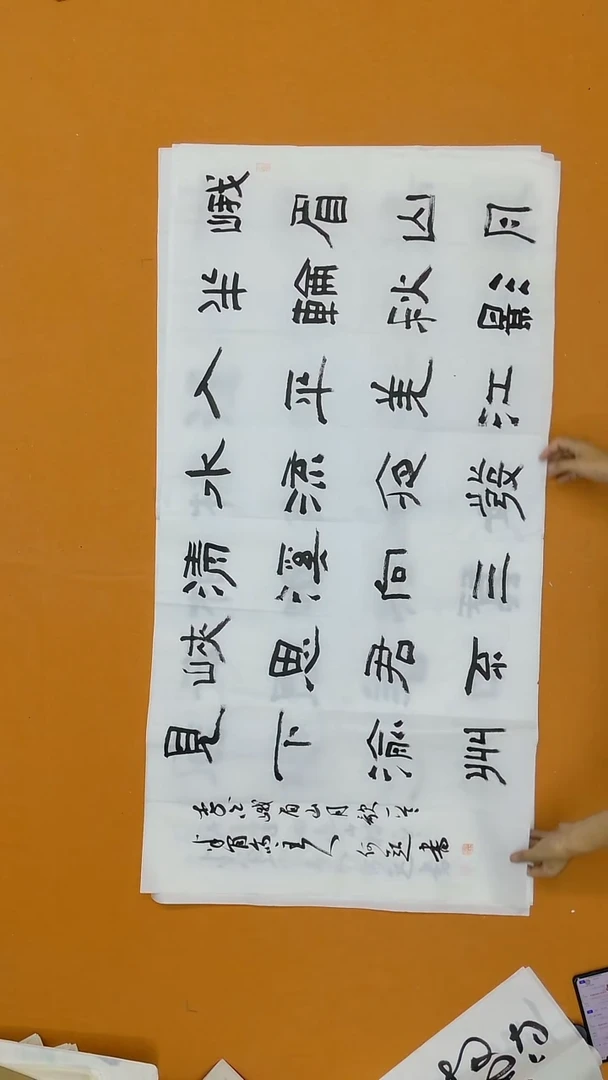 峨眉山月
半輪秋影
入平羌江
水流夜發
清溪向三
峡思君不
見下渝州
李白峨眉山月歌一首
主人 何 書